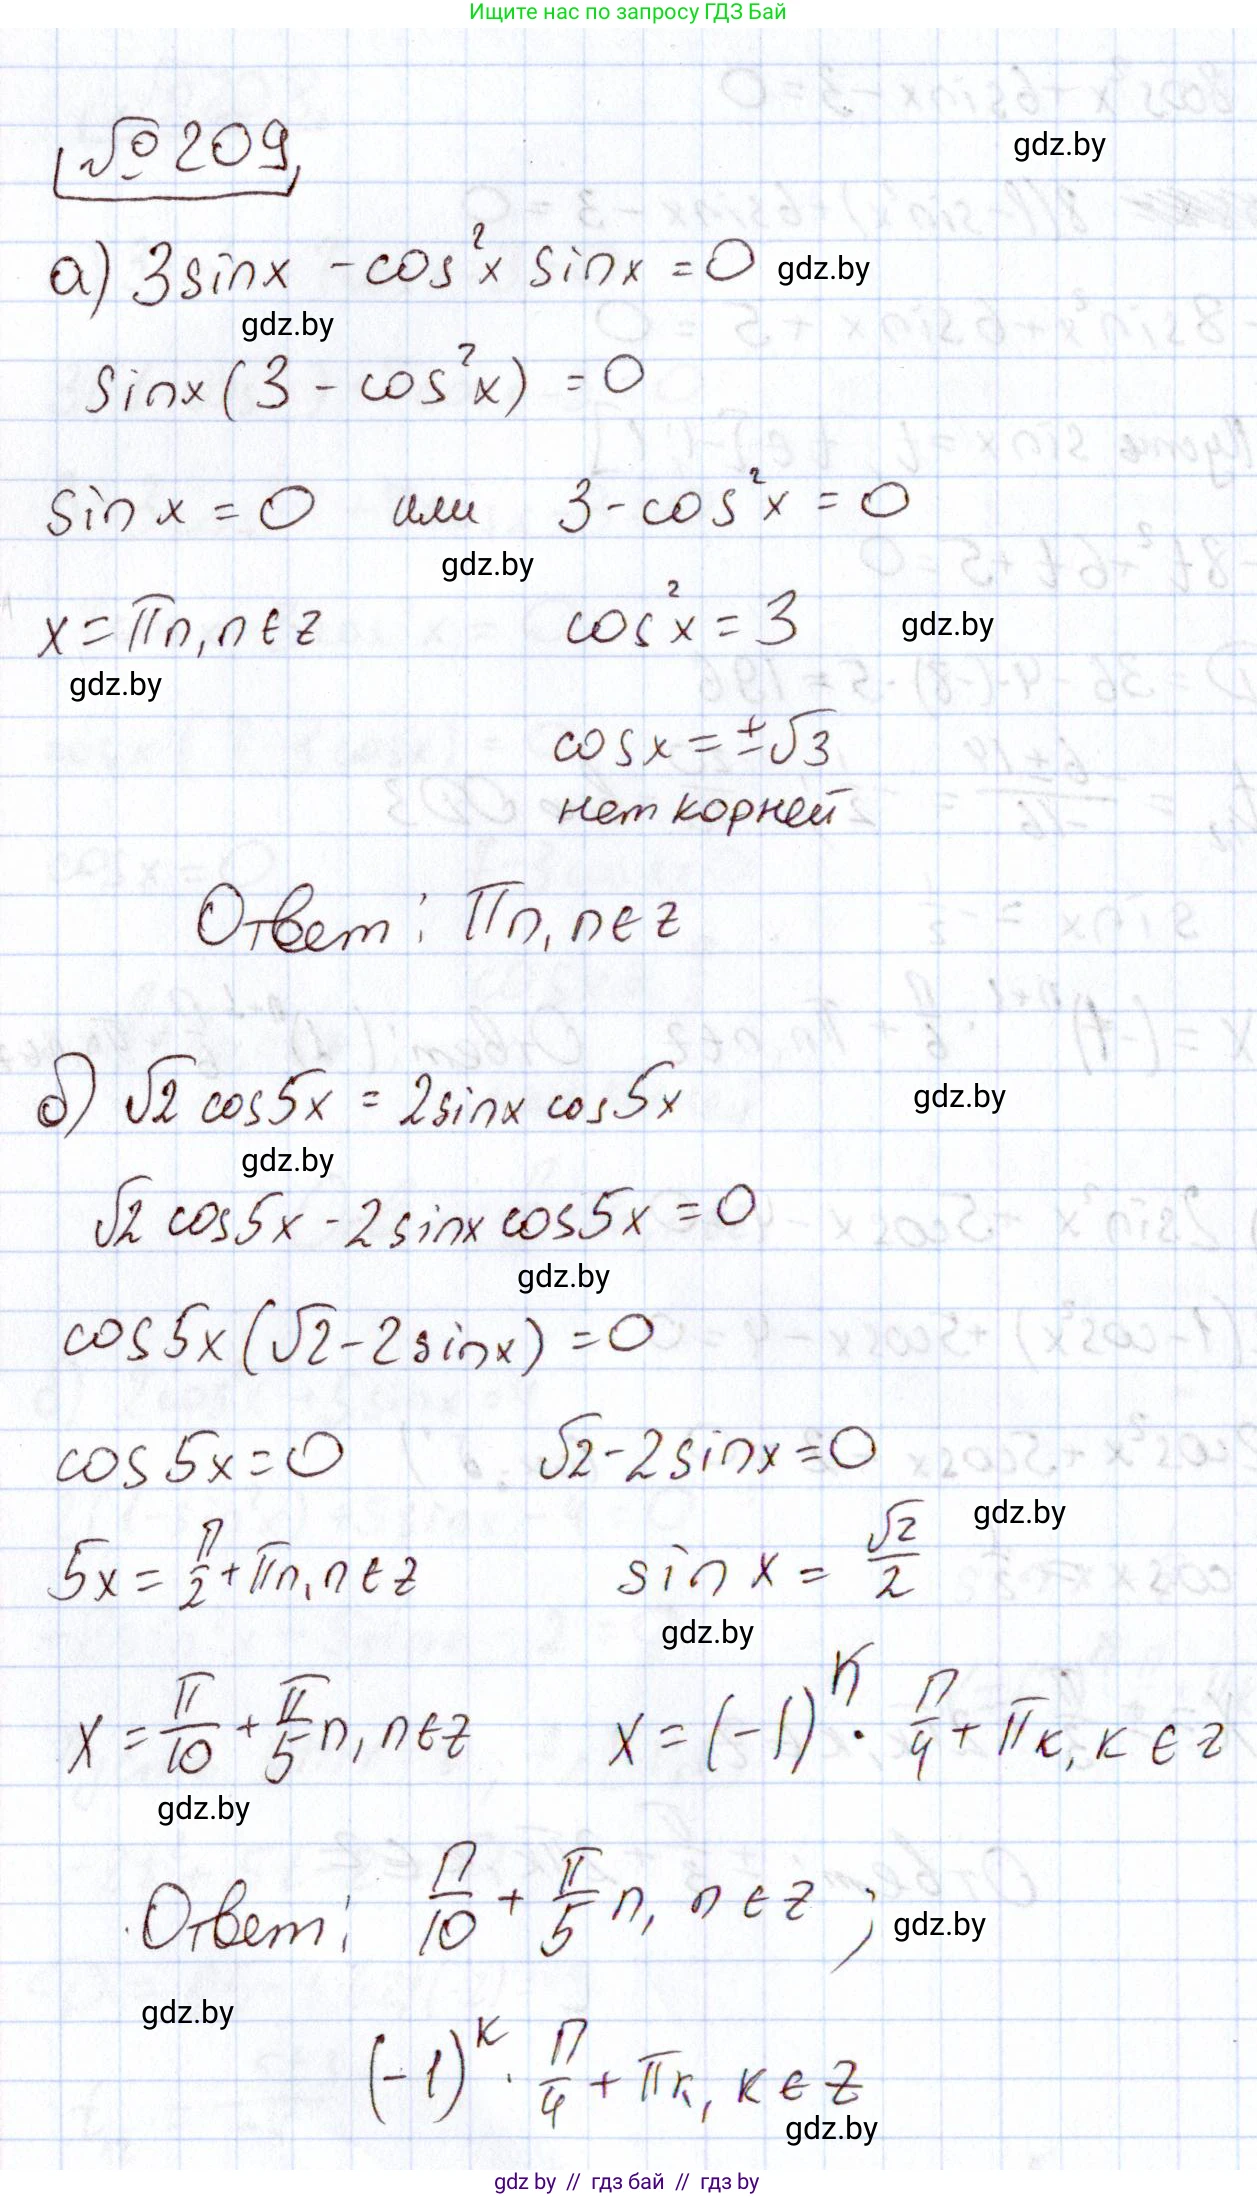 Ищите нас по запросу ГДЗ Бай
№209
gdz.by
а) 3sinx - cos²x sinx = 0
gdz.by
gdz.by
sinx(3 - cos²x) = 0
sin x = 0 или 3 - cos²x = 0
gdz.by
x = πn, n ∈ z cos²x = 3
gdz.by
gdz.by
cosx = ±√3
нет корней
Ответ: πn, n ∈ z
б) √2 cos5x = 2sinx cos5x
gdz.by
gdz.by
√2 cos5x - 2sinx cos5x = 0
gdz.by
cos5x(√2 - 2sinx) = 0
cos5x = 0 √2 - 2sinx = 0
gdz.by
5x = π/2 + πn, n ∈ z sin x = √2/2
gdz.by
x = π/10 + π/5 n, n ∈ z x = (-1)ᴷ · π/4 + πк, к ∈ z
gdz.by
Ответ: π/10 + π/5 n, n ∈ z;
gdz.by
gdz.by
(-1)ᴷ · π/4 + πк, к ∈ z
gdz.by
gdz by // гдз бай // гдз by